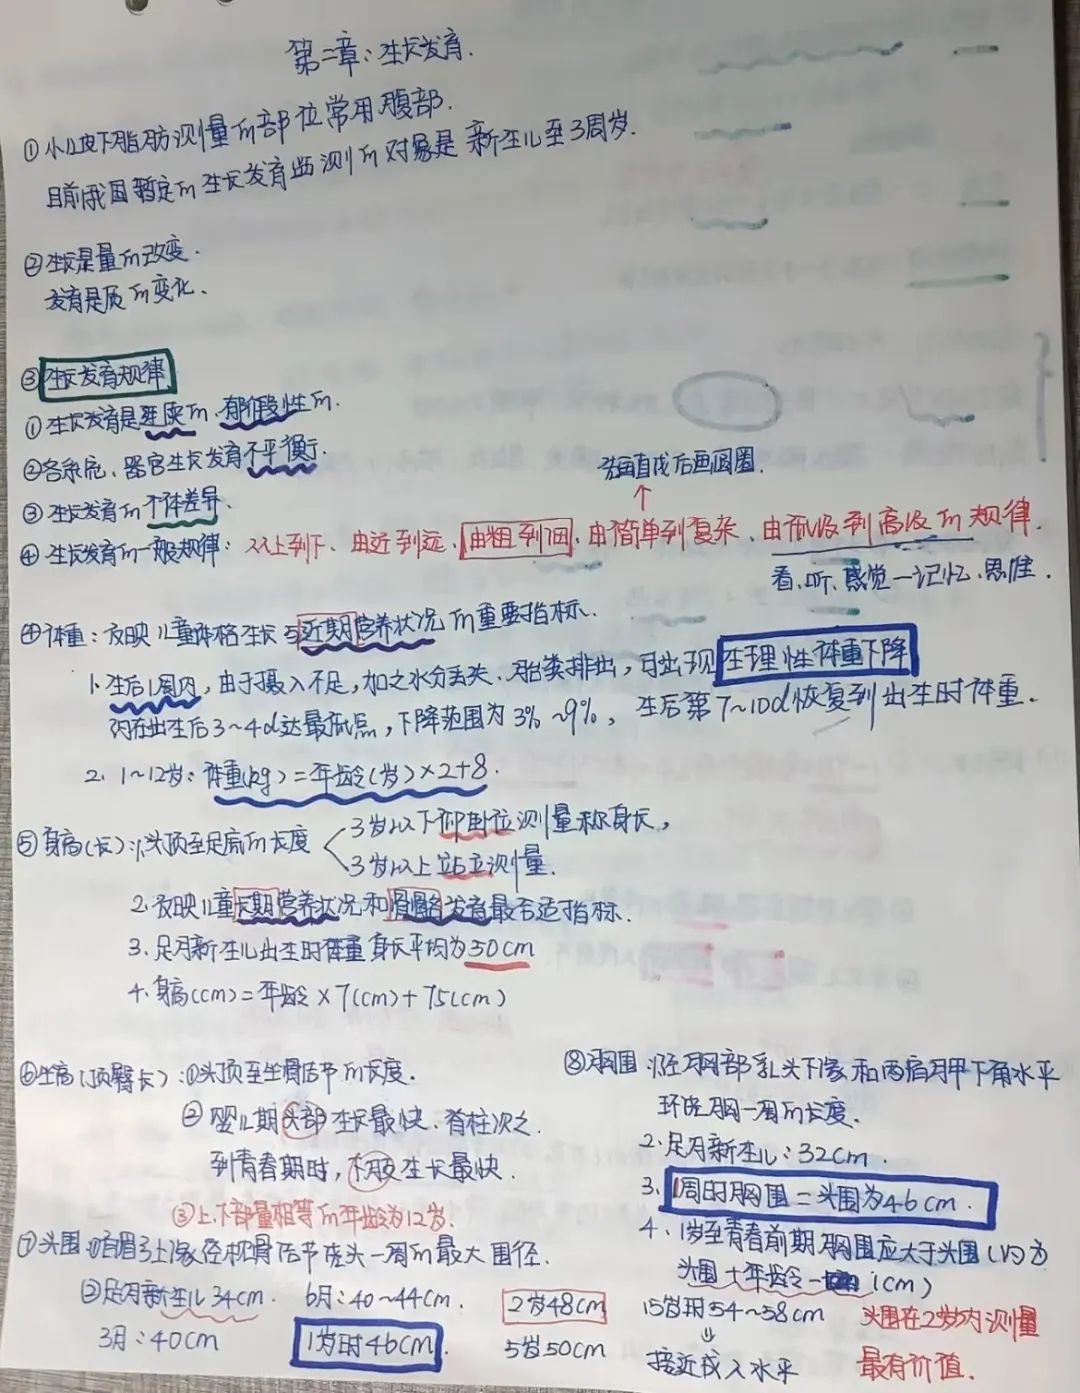 第二章：生长发育.
① 小儿皮下脂肪测量的部位常用腹部.
目前我国暂定的生长发育监测的对象是新生儿至3周岁.
② 生长是量的改变.
发育是质的变化.
③ 生长发育规律
① 生长发育是连续的、有阶段性的.
② 各系统、器官生长发育不平衡.
③ 生长发育的个体差异.
先画直线后画圆圈.
④ 生长发育的一般规律：从上到下、由近到远、由粗到细、由简单到复杂、由低级到高级的规律.
看、听、感觉—记忆、思维.
④ 体重：反映儿童体格生长与近期营养状况的重要指标.
1. 生后1周内，由于摄入不足，加之水分丢失、胎粪排出，可出现生理性体重下降
约在出生后3~4d达最低点，下降范围为3%~9%，生后第7~10d恢复到出生时体重.
2. 1~12岁：体重(kg)=年龄(岁)×2+8.
⑤ 身高(长)：1.头顶至足底的长度
3岁以下仰卧位测量称身长，
3岁以上站立测量.
2. 反映儿童长期营养状况和骨骼发育最合适指标.
3. 足月新生儿出生时体重身长平均为50cm
4. 身高(cm)=年龄×7(cm)+75(cm)
⑥ 坐高(顶臀长)：①头顶至坐骨结节的长度.
② 婴儿期头部生长最快、脊柱次之.
到青春期时，下肢生长最快.
③ 上、下部量相等的年龄为12岁.
⑦ 头围：①眉弓上缘经枕骨结节绕头一周的最大围径.
② 足月新生儿34cm. 6月：40~44cm. 2岁48cm
3月：40cm 1岁时46cm. 5岁50cm
15岁时54~58cm
接近成人水平
头围在2岁内测量
最有价值.
⑧ 胸围：1.经胸部乳头下缘和两肩胛甲下角水平
环绕胸一周的长度.
2. 足月新生儿：32cm.
3. 1周时胸围=头围为46cm.
4. 1岁至青春前期胸围应大于头围(约为
头围+年龄-1cm)